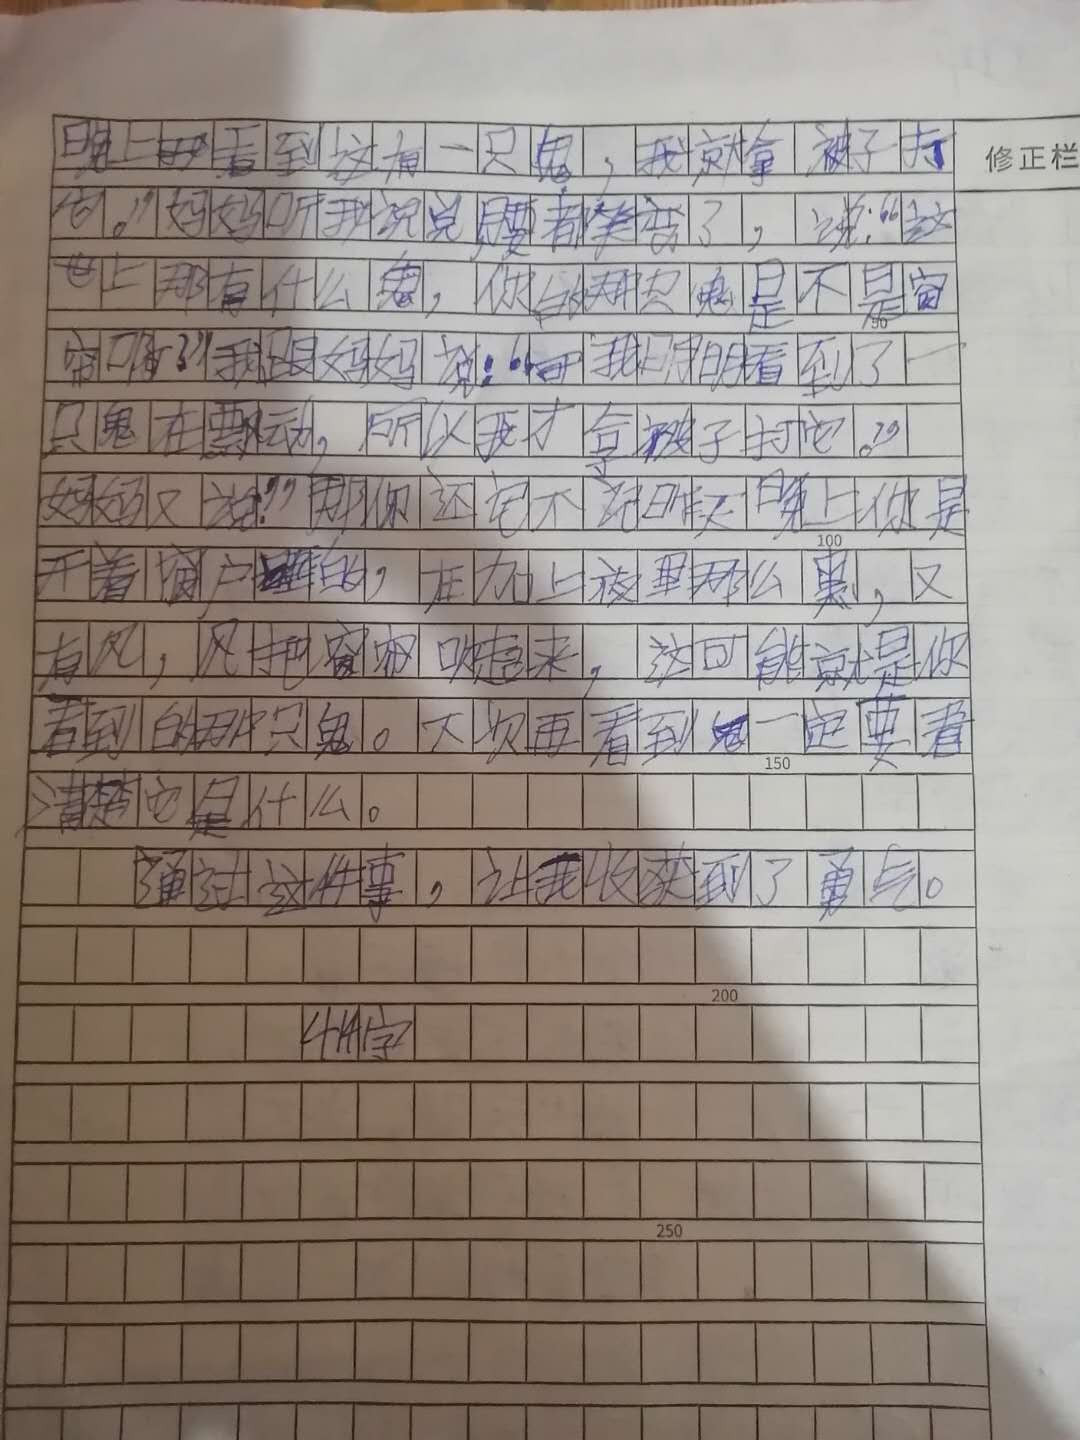 晚上看到这有一只鬼，我就拿被子打
它。”妈妈听我说腰都笑弯了，说：“这
世上那有什么鬼，你的那只鬼是不是窗
帘啊？”我跟妈妈说：“我明明看到了一
只鬼在飘动，所以我才拿被子打它。”
妈妈又说：”那你还记不记昨天晚上你是
开着窗户睡的，在加上夜里那么黑，又
有风，风把窗帘吹起来，这可能就是你
看到的那只鬼。下次再看到鬼一定要看
清楚它是什么。
通过这件事，让我收获到了勇气。
字
修正栏
90
100
150
200
250